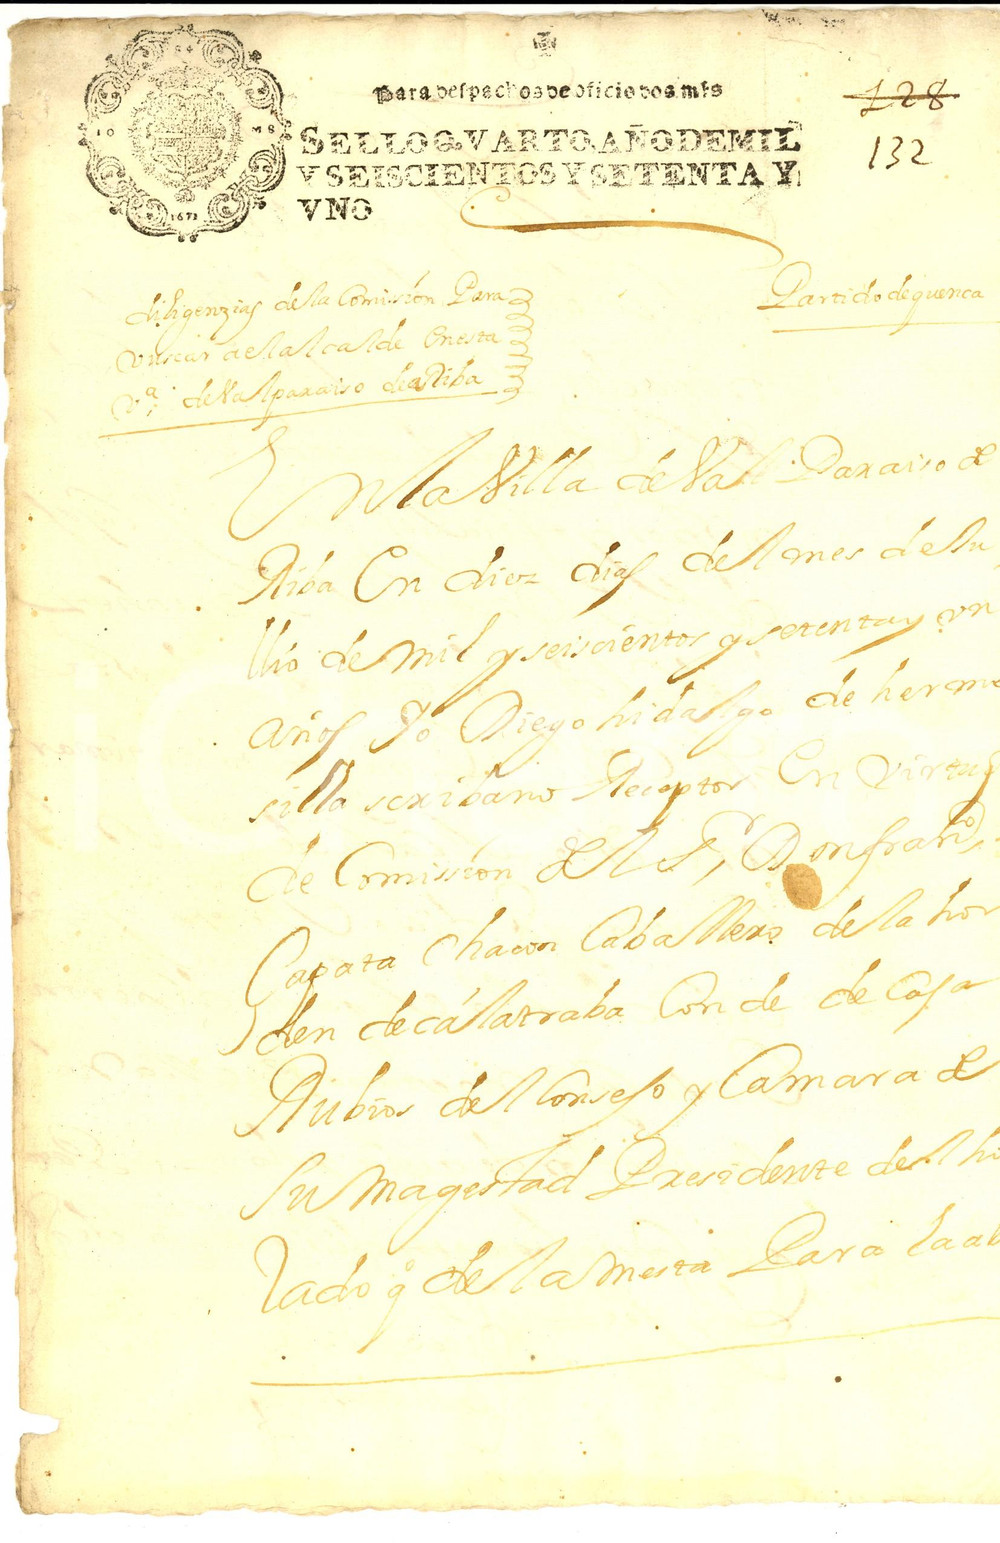 Para despachos de oficio dos mrs
SELLO QVARTO AÑO DE MIL
Y SEISCIENTOS Y SETENTA Y
VNO
1671
128
132
Partido de quenca
diligenzias de la Comission Para
vuscar ael alcalde Enesta
Vª de Valparaiso de aRiba
En la Villa de Vall Paraiso de
Riba En diez dias del mes de Ju
llio de mil y seiscientos y setenta y vn
años Yo Diego hidalgo de herme
silla scribano Receptor En virtud
de Comission del Sr Don franco
Çapata Chacon Caballero de la hor
den de calatraba Conde de Casa
Rubios del Consejo y Camara de
Su Magestad Presidente del h
lado qº de la mesta Para la ab